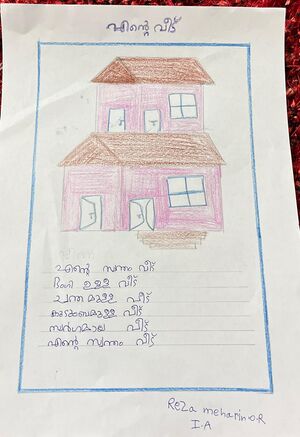 എന്റെ വീട്
എന്റെ സ്വന്തം വീട്
ഭംഗി ഉള്ള വീട്
ചന്തമുള്ള വീട്
കുടുംബമുള്ള വീട്
സ്വർഗമാല വീട്
എന്റെ സ്വന്തം വീട്
Reza meharin.R
I.A